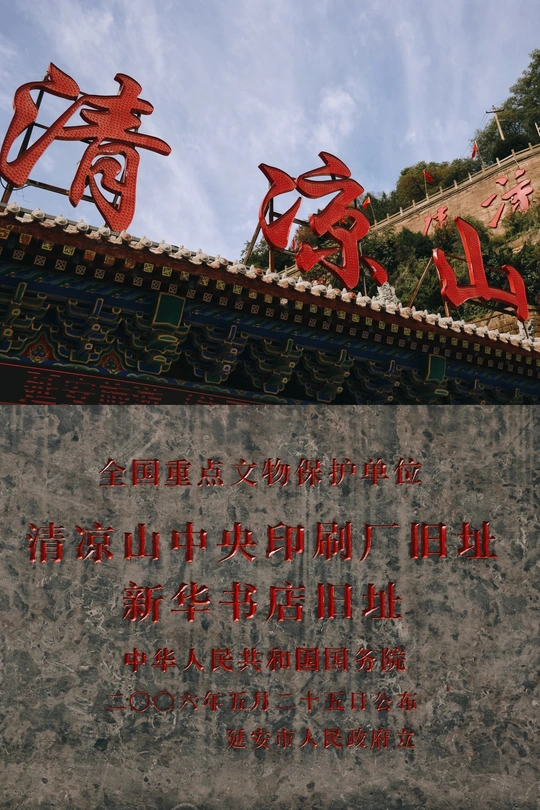 清凉山
清凉
全国重点文物保护单位
清凉山中央印刷厂旧址
新华书店旧址
中华人民共和国国务院
二〇〇六年五月二十五日公布
延安市人民政府立